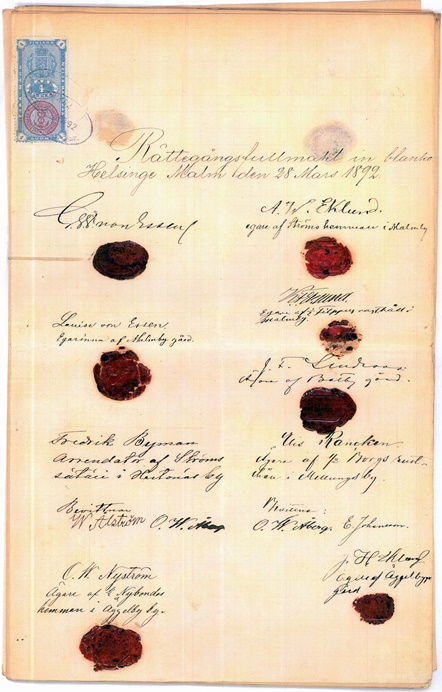 FINLAND
Rättegångsfullmakt in blanko
Helsinge Malm den 28 Mars 1892
von Essen
A. W. Eklund.
egare af Ströms hemman i Malmby
Louise von Essen.
Egarinna af Malmby gård.
Egare af
Malmby
J. F. Lindroos
Egare af Botby gård.
Fredrik Byman
Arrendator af Ströms
säteri i Hertonäs by
Rancken.
Ägare af 1/2 Borgs rust-
i Mellungsby.
Bevittnar
W. Alström O. W. Åberg
Bevittna:
O. W. Åberg. E. Johansson.
O. W. Nyström
Ägare af Nybondes
hemman i Åggelby by.
J. H. Eklund
Ägare af Åggelby
gård